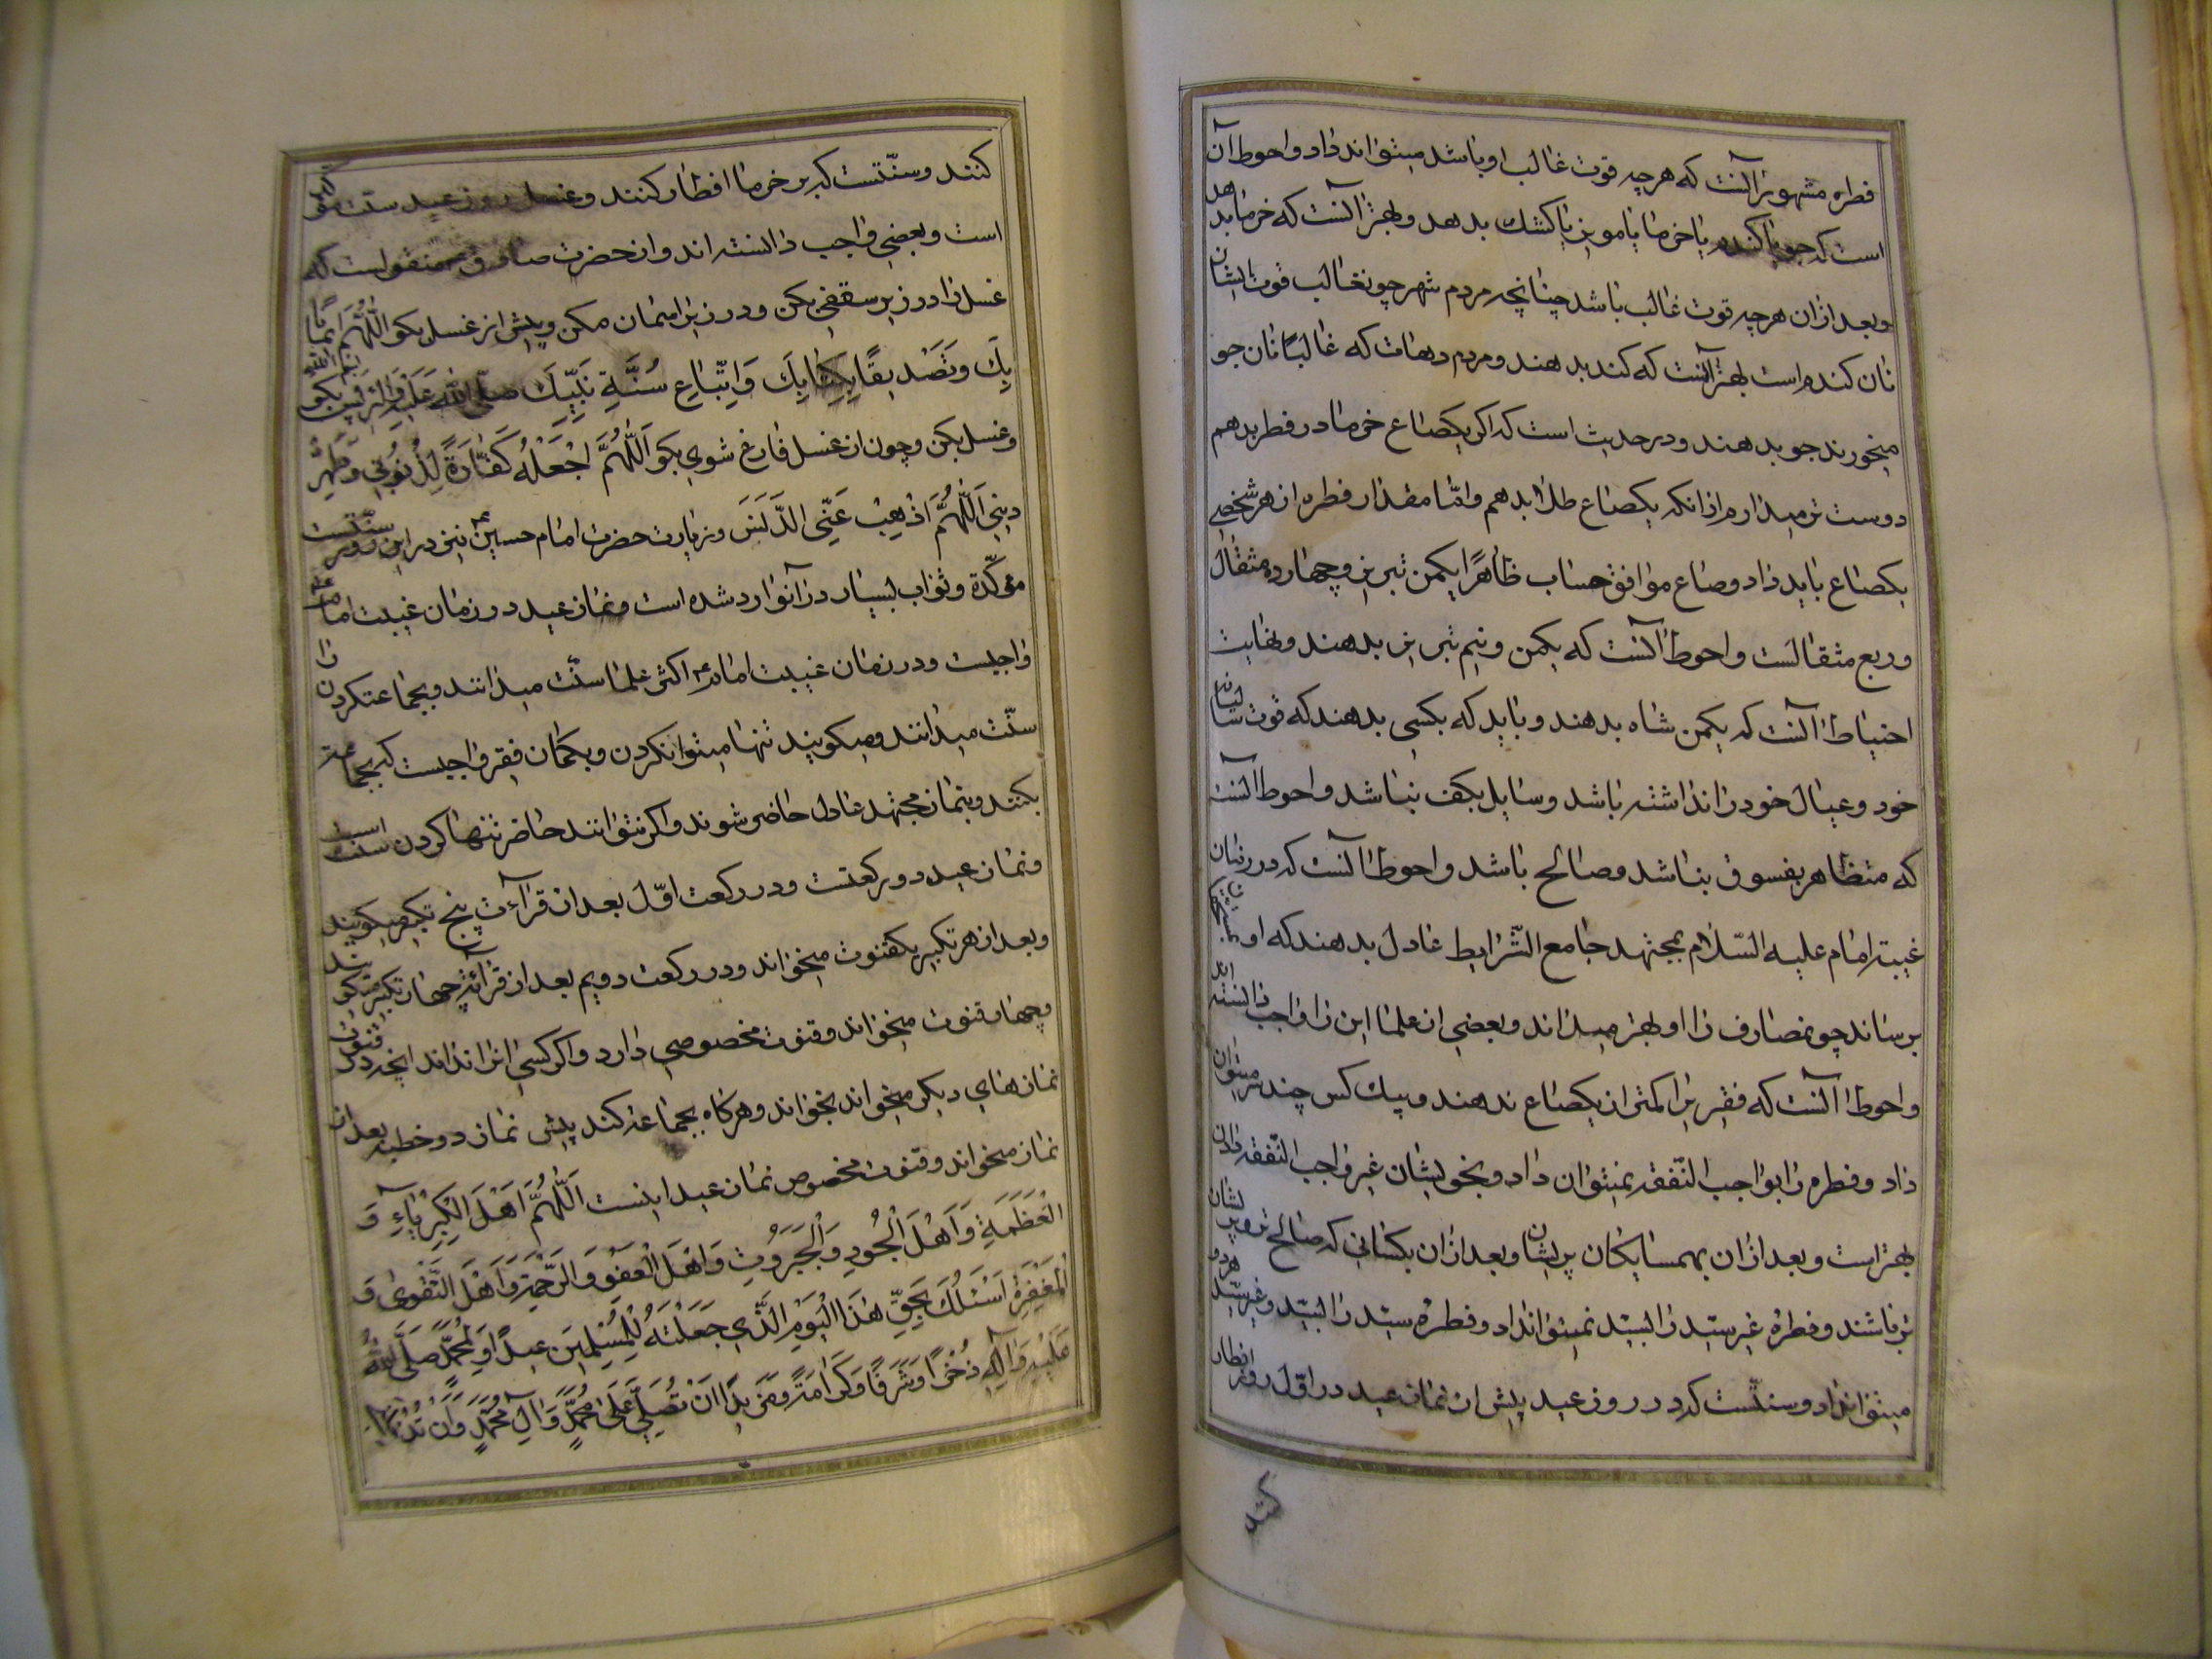 فطره مشهور آنست که هرچه قوت غالب او باشد میتواند داد و احوط آن
است که جو یا گندم یا خرما یا مویز یا کشک بدهد و بهتر آنست که خرما بدهد
و بعد از آن هرچه قوت غالب باشد چنانچه مردم شهر چون غالب قوت ایشان
نان گندم است بهتر آنست که گندم بدهند و مردم دهات که غالبًا نان جو
میخورند جو بدهند و در حدیث است که اگر یکصاع خرما در فطر بدهم
دوست تر میدارم از انکه یکصاع طلا بدهم و امّا مقدار فطره از هر شخصی
یکصاع باید داد و صاع موافق حساب ظاهرًا یکمن تبریز و چهارده مثقال
و ربع مثقالست و احوط آنست که یکمن و نیم تبریز بدهند و نهایت
احتیاط آنست که یکمن شاه بدهند و باید که بکسی بدهند که قوت سالیانه
خود و عیال خود را نداشته باشد و سایل بکف نباشد و احوط آنست
که متظاهر بفسوق نباشد و صالح باشد و احوط آنست که در زمان
غیبت امام علیه السّلام بمجتهد جامع الشّرایط عادل بدهند که او بمستحقان
برساند چو مصارف را او بهتر میداند و بعضی از علما این را واجب دانسته اند
و احوط آنست که فقیر را کمتر از یکصاع ندهند و بیک کس چند سر میتوان
داد و فطره را بواجب النّفقه نمیتوان داد و بخویشان غیر واجب النّفقه دادن
بهتر است و بعد از آن بهمسایکان پریشان و بعد از آن بکسانی که صالح تر و پریشان
تر باشند و فطره غیر سیّد را بسیّد نمیتوان داد و فطره سیّد را بسیّد و غیر سیّد هر دو
میتوان داد و سنّتست که در روز عید پیش از نماز عید در اوّل روز افطار
کنند
کنند و سنّتست که بر خرما افطار کنند و غسل روز عید سنّت مؤکد
است و بعضی واجب دانسته اند و از حضرت صادق منقولست که
غسل را در زیر سقفی بکن و در زیر اسمان مکن و پیش از غسل بکو اَللّٰهُمَّ اِیمَانًا
بِكَ وَ تَصْدِیقًا بِكِتَابِكَ وَ اِتِّبَاعِ سُنَّةِ نَبِیِّكَ صلّی اللّه عَلَیْهِ وَ اٰلِهِ پس بکو بسم اللّه
و غسل بکن و چون از غسل فارغ شوی بکو اَللّٰهُمَّ اجْعَلْهُ كَفَّارَةً لِذُنُوبِی وَ طَهِّرْ
دِینِی اَللّٰهُمَّ اَذْهِبْ عَنِّی الدَّنَسَ و زیارت حضرت امام حسین ع نیز در این روز سنّتست
مؤکّدة و ثواب بسیار در آنوارد شده است و نماز عید در زمان غیبت امام ع
واجبست و در زمان غیبت امام ع اکثر علما سنّت میدانند و بجماعت کردن را
سنّت میدانند و میکویند تنها میتوان کردن و بکمان فقیر واجبست که بجماعت
بکنند و بنماز مجتهد عادل حاضر شوند و اکر نتوانند حاضر تنها کردن سنّت است
و نماز عید دو رکعتست و در رکعت اوّل بعد از قرآءت پنج تکبیر میکویند
و بعد از هر تکبیر یکقنوت میخواند و در رکعت دویم بعد از قرائت چهار تکبیر میکویند
و چهار قنوت میخواند و قنوت مخصوصی دارد و اکر کسی انرا نداند انچه در قنوت
نمازهای دیکر میخواند بخواند و هرکاه بجماعت کند پیش نماز دو خطبه بعد از
نماز میخواند و قنوت مخصوص نماز عید اینست اَللّٰهُمَّ اَهْلَ الْكِبْرِیَآءِ وَ
الْعَظَمَةِ وَ اَهْلَ الْجُودِ وَ الْجَبَرُوتِ وَ اَهْلَ الْعَفْوِ وَ الرَّحْمَةِ وَ اَهْلَ التَّقْوٰی وَ
الْمَغْفِرَةِ اَسْئَلُكَ بِحَقِّ هٰذَا الْیَوْمِ الَّذِی جَعَلْتَهُ لِلْمُسْلِمِینَ عِیدًا وَ لِمُحَمَّدٍ صَلَّی اللّٰهُ
عَلَیْهِ وَ اٰلِهِ ذُخْرًا وَ شَرَفًا وَ كَرَامَةً وَ مَزِیدًا اَنْ تُصَلِّیَ عَلٰی مُحَمَّدٍ وَ اٰلِ مُحَمَّدٍ وَ اَنْ